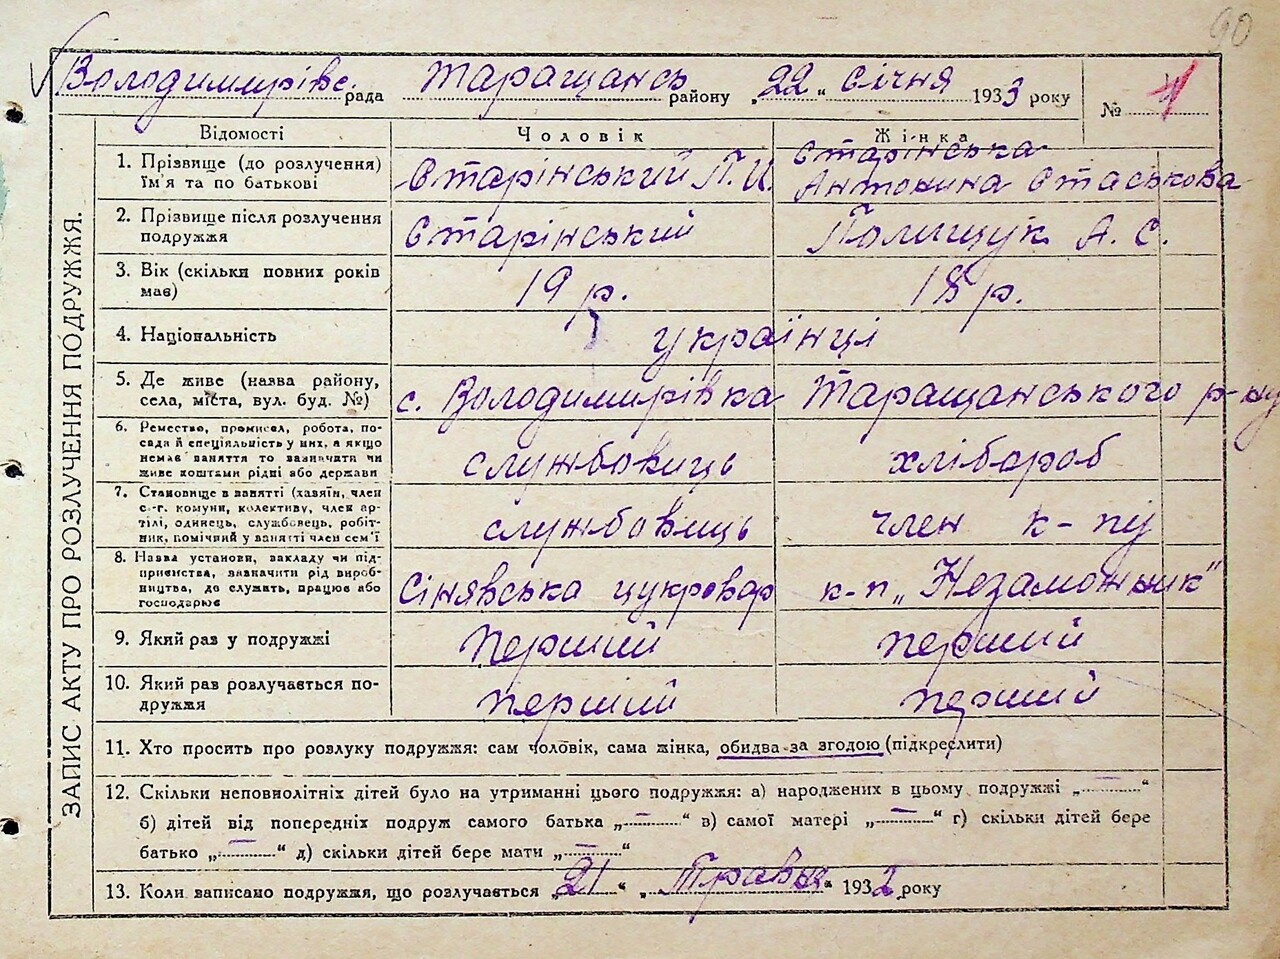 90
Володимирівс. рада Таращансь району „22„ січня 1933 року № 1
ЗАПИС АКТУ ПРО РОЗЛУЧЕННЯ ПОДРУЖЖЯ.
Відомості Чоловік Жінка
1. Прізвище (до розлучення) Ім'я та по батькові Старінський П. И. Старінська Антонина Стаськова
2. Прізвище після розлучення подружжя Старінський Полищук А. С.
3. Вік (скільки повних років має) 19 р. 18 р.
4. Національність українці
5. Де живе (назва району, села, міста, вул. буд. №) с. Володимирівка Таращанського р-ну
6. Ремество, промисел, робота, посада й спеціяльність у них, а якщо немає заняття то зазначити чи живе коштами рідні або держави службовиць хлібороб
7. Становище в занятті (хазяїн, член с.-г. комуни, колективу, член артілі, одинець, службовець, робітник, помічний у занятті член сем'ї службовиць член к-пу
8. Назва установи, закладу чи підприємства, зазначити рід виробництва, де служать, працює або господарює Сінявська цукровар к-п „Незаможник"
9. Який раз у подружжі перший перший
10. Який раз розлучається подружжя перший перший
11. Хто просить про розлуку подружжя: сам чоловік, сама жінка, обидва за згодою (підкреслити)
12. Скільки неповнолітніх дітей було на утриманні цього подружжя: а) народжених в цьому подружжі „ — “
б) дітей від попередніх подруж самого батька „ — “ в) самої матері „ — “ г) скільки дітей бере
батько „ — “ д) скільки дітей бере мати „ — “
13. Коли записано подружжя, що розлучається „21“ „Травня“ 1932 року